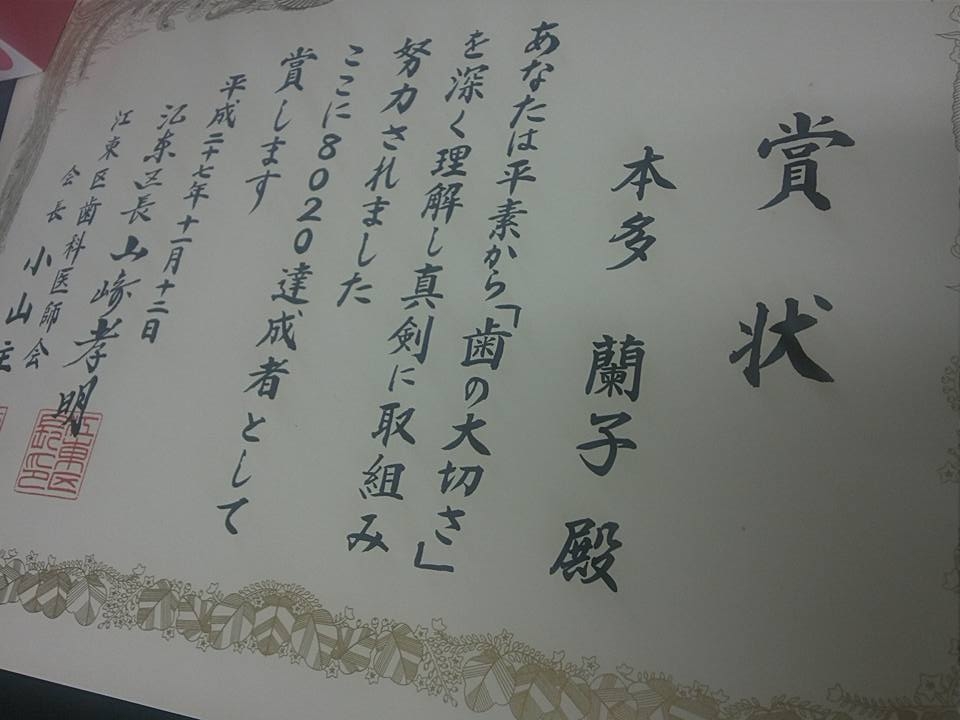 賞状
本多 蘭子 殿
あなたは平素から「歯の大切さ」
を深く理解し真剣に取組み
努力されました
ここに8020達成者として
賞します
平成二十七年十一月十二日
江東区長 山﨑孝明
江東区歯科医師会
会長 小山主
江東区
長印